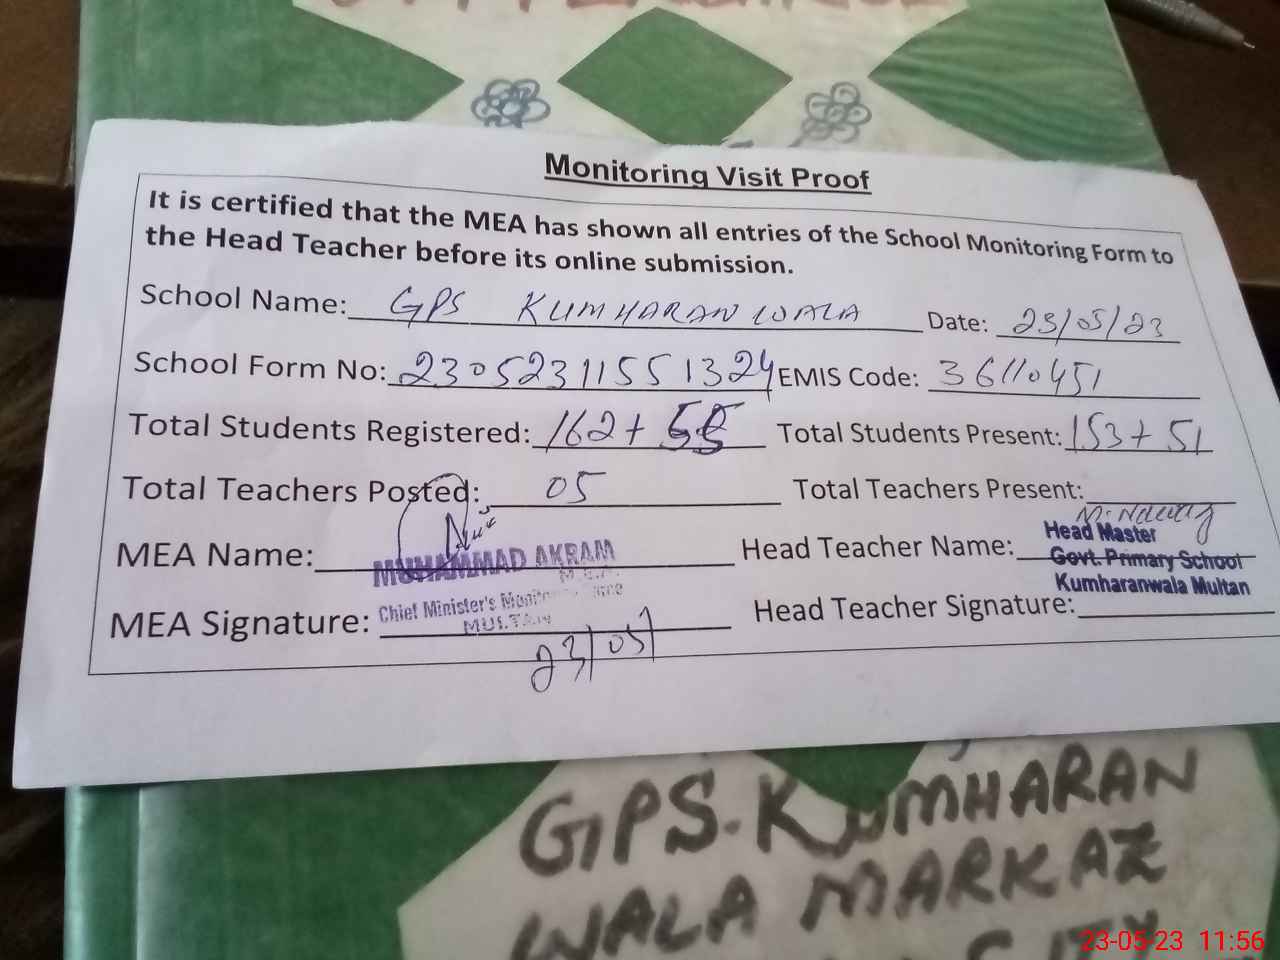 Monitoring Visit Proof
It is certified that the MEA has shown all entries of the School Monitoring Form to
the Head Teacher before its online submission.
School Name: GPS KUMHARAN WALA Date: 23/05/23
School Form No: 230523115551324 EMIS Code: 36110451
Total Students Registered: 162+ Total Students Present: 153+51
Total Teachers Posted: 05 Total Teachers Present:
M. Nawaz
MEA Name: MUHAMMAD AKRAM Head Teacher Name: Head Master
Govt. Primary School
Kumharanwala Multan
MEA Signature: Chief Minister's Head Teacher Signature:
MULTAN
23/05/
GPS. KUMHARAN
WALA MARKAZ
CITY
23-05-23 11:56